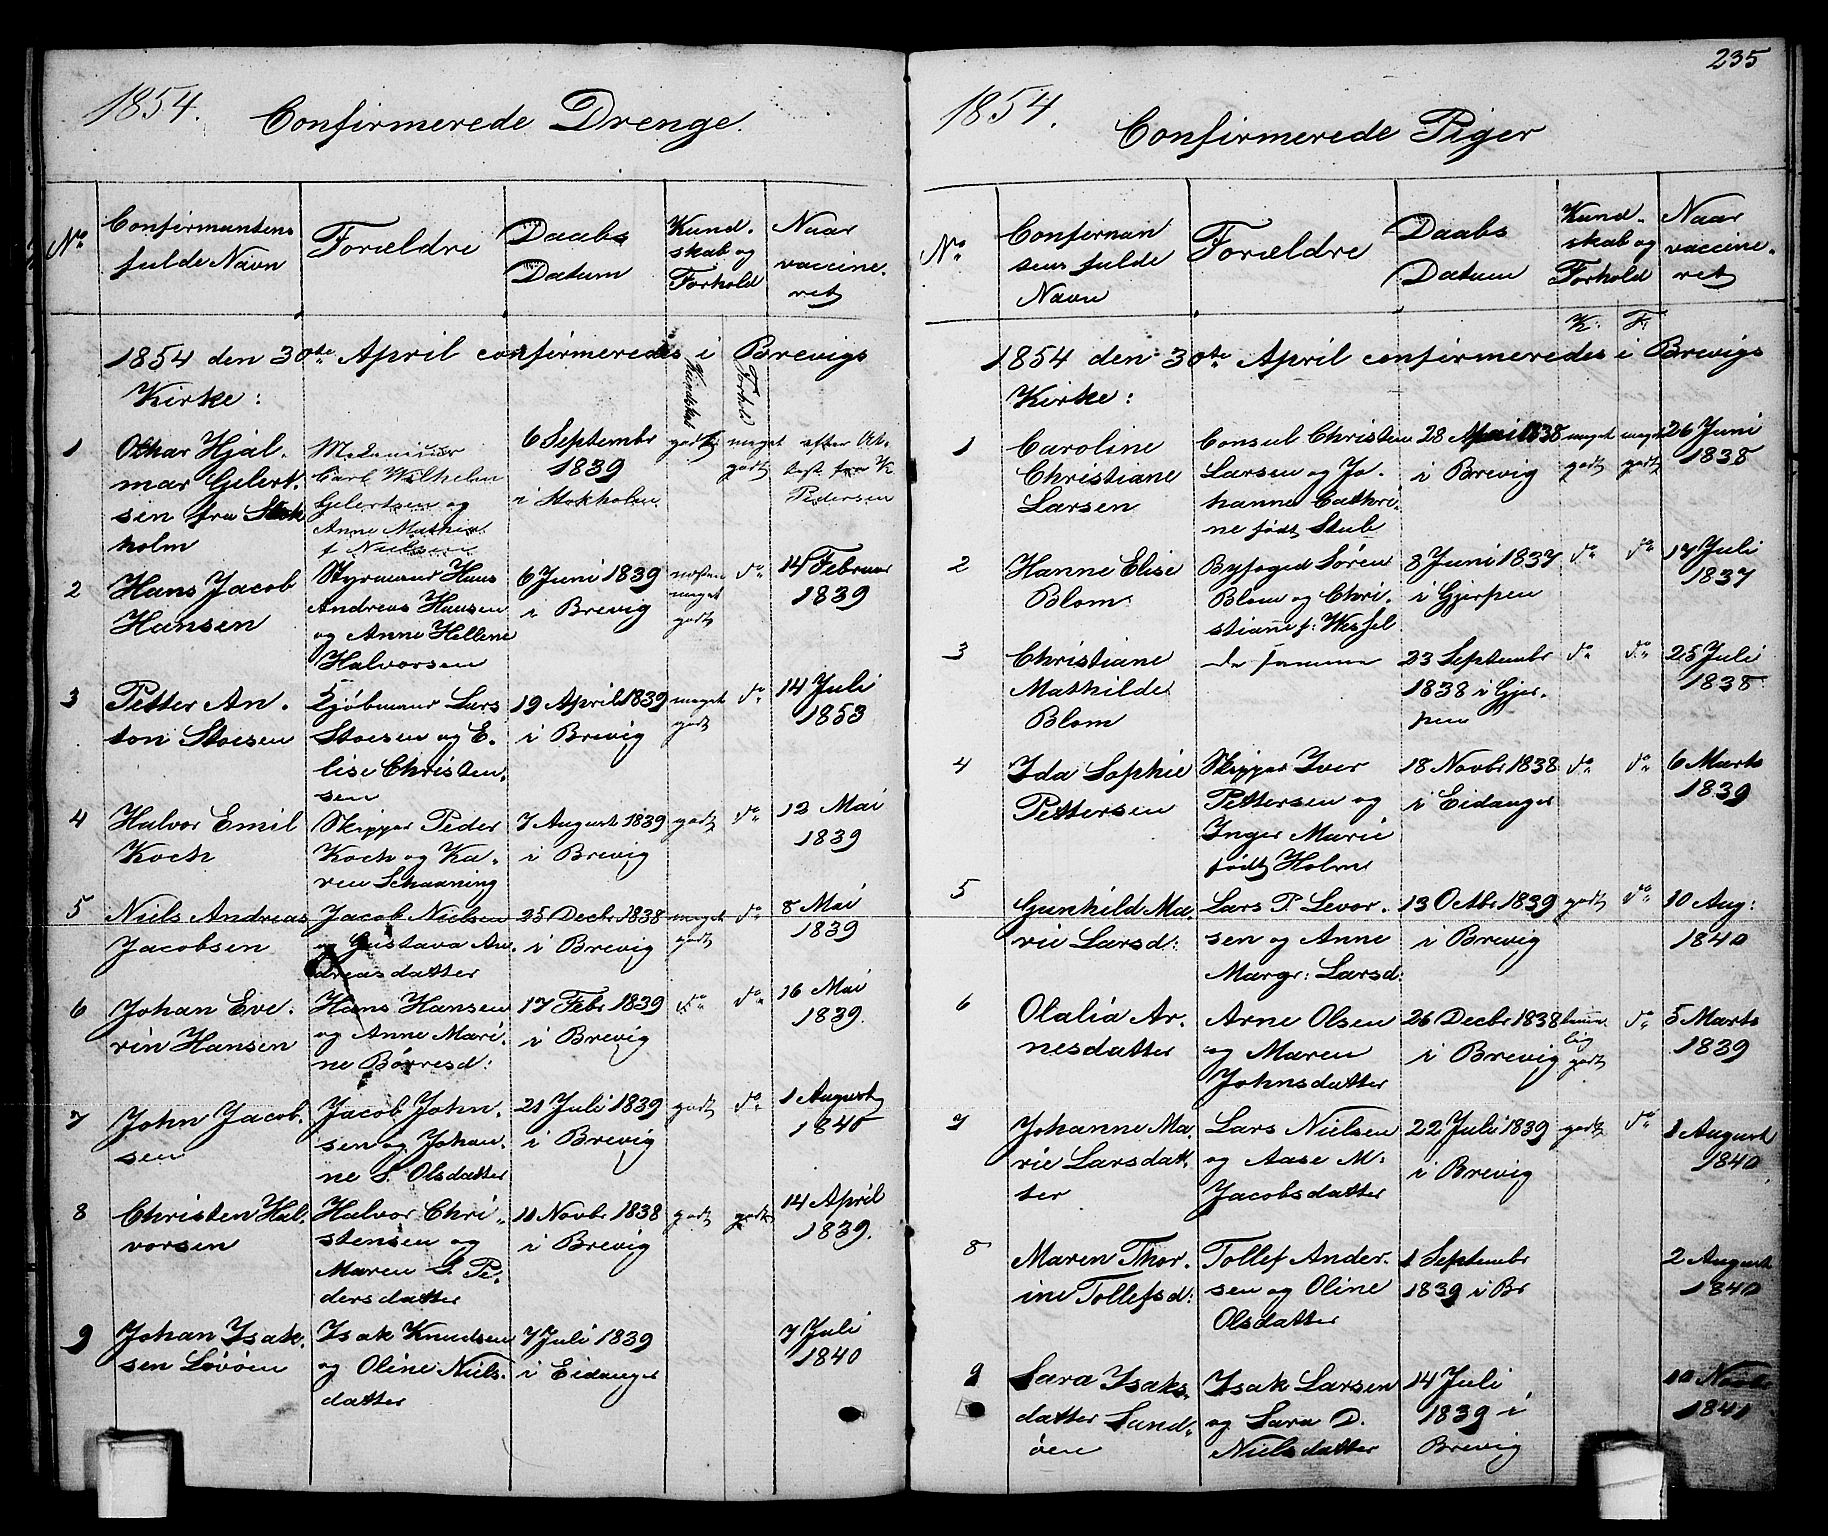 1854.
Confirmerede Drenge.
No
Confirmantens
fulde Navn
Forældre
Daabs
Datum
Kund-
skab og
Forhold
Naar
vaccine-
ret
1854 den 30te April confirmeredes i Brevigs
Kirke:
Kundskab
Forhold
1
Othar Hjal-
mar Gelert-
sen fra Stok
holm
Carl Wilhelm
Gelertsen og
Anne Mathia
f Nielsen
6 Septembr
1839
i Stokholm
godt
meget
godt
efter At-
test fra K.
Pedersen
2
Hans Jacob
Hansen
Styrmand Hans
Andreas Hansen
og Anne Hellene
Halvorsen
6 Juni 1839
i Brevig
næsten
meget
godt
do
14 Februar
1839
3
Petter An-
ton Stoesen
Kjøbmand Lars
Stoesen og E-
lise Christen-
sen
19 April 1839
i Brevig
meget
godt
do
14 Juli
1853
4
Halvor Emil
Koch
Skipper Peder
Koch og Ka-
ren Schaaning
7 August 1839
i Brevig
godt
do
12 Mai
1839
5
Niels Andreas
Jacobsen
Jacob Nielsen
og Gustava An-
dreasdatter
25 Decbr 1838
i Brevig
meget
godt
do
8 Mai
1839
6
Johan Eve-
rin Hansen
Hans Hansen
og Anne Mari-
ne Børresd:
17 Febr 1839
i Brevig
do
do
16 Mai
1839
7
John Jacob-
sen
Jacob John-
sen og Johan-
ne S. Olsdatter
21 Juli 1839
i Brevig
godt
do
1 August
1840
8
Christen Hal-
vorsen
Halvor Chri-
stensen og
Maren S. Pe-
dersdatter
11 Novbr 1838
i Brevig
godt
godt
14 April
1839.
9
Johan Isak-
sen Løvøen
Isak Knudsen
og Oline Niels-
datter
7 Juli 1839
i Eidanger
7 Juli
1840
235
1854.
Confirmerede Piger
No
Confirman
tens fulde
Navn
Forældre
Daabs
Datum
Kund-
skab og
Forhold
Naar
vaccine-
ret
K:
F:
1854 den 30te April confirmeredes i Brevigs
Kirke:
1
Caroline
Christiane
Larsen
Consul Christen
Larsen og Jo-
hanne Cathri-
ne født Stub
28 April 1838
i Brevig
meget
godt
meget
godt
26 Juni
1838
2
Hanne Elise
Blom
Byfoged Søren
Blom og Chri-
stiane f: Wessel
8 Juni 1837
i Gjerpen
do
do
17 Juli
1837
3
Christiane
Mathilde
Blom
de samme
23 Septembr
1838 i Gjer-
pen
do
do
25 Juli
1838
4
Ida Sophie
Pettersen
Skipper Iver
Pettersen og
Inger Marie
født Holm
18 Novbr 1838
i Eidanger
do
do
6 Marts
1839
5
Gunhild Ma-
rie Larsd:
Lars P. Levor-
sen og Anne
Margr: Larsd:
13 Octbr 1839
i Brevig
godt
do
10 Aug:
1840
6
Olalia Ar-
nesdatter
Arne Olsen
og Maren
Johnsdatter
26 Decbr 1838
i Brevig
temme
lig
godt
do
5 Marts
1839
7
Johanne Ma-
rie Larsdat-
ter
Lars Nielsen
og Aase M:
Jacobsdatter
22 Juli 1839
i Brevig
godt
do
1 August
1840
8
Maren Thor-
ine Tollefsd:
Tollef Ander-
sen og Oline
Olsdatter
1 Septembr
1839 i Br
2 August
1840
9
Sara Isaks-
datter Sand-
øen
Isak Larsen
og Sara D.
Nielsdatter
14 Juli
1839 i
Brevig
10 Novbr
1841